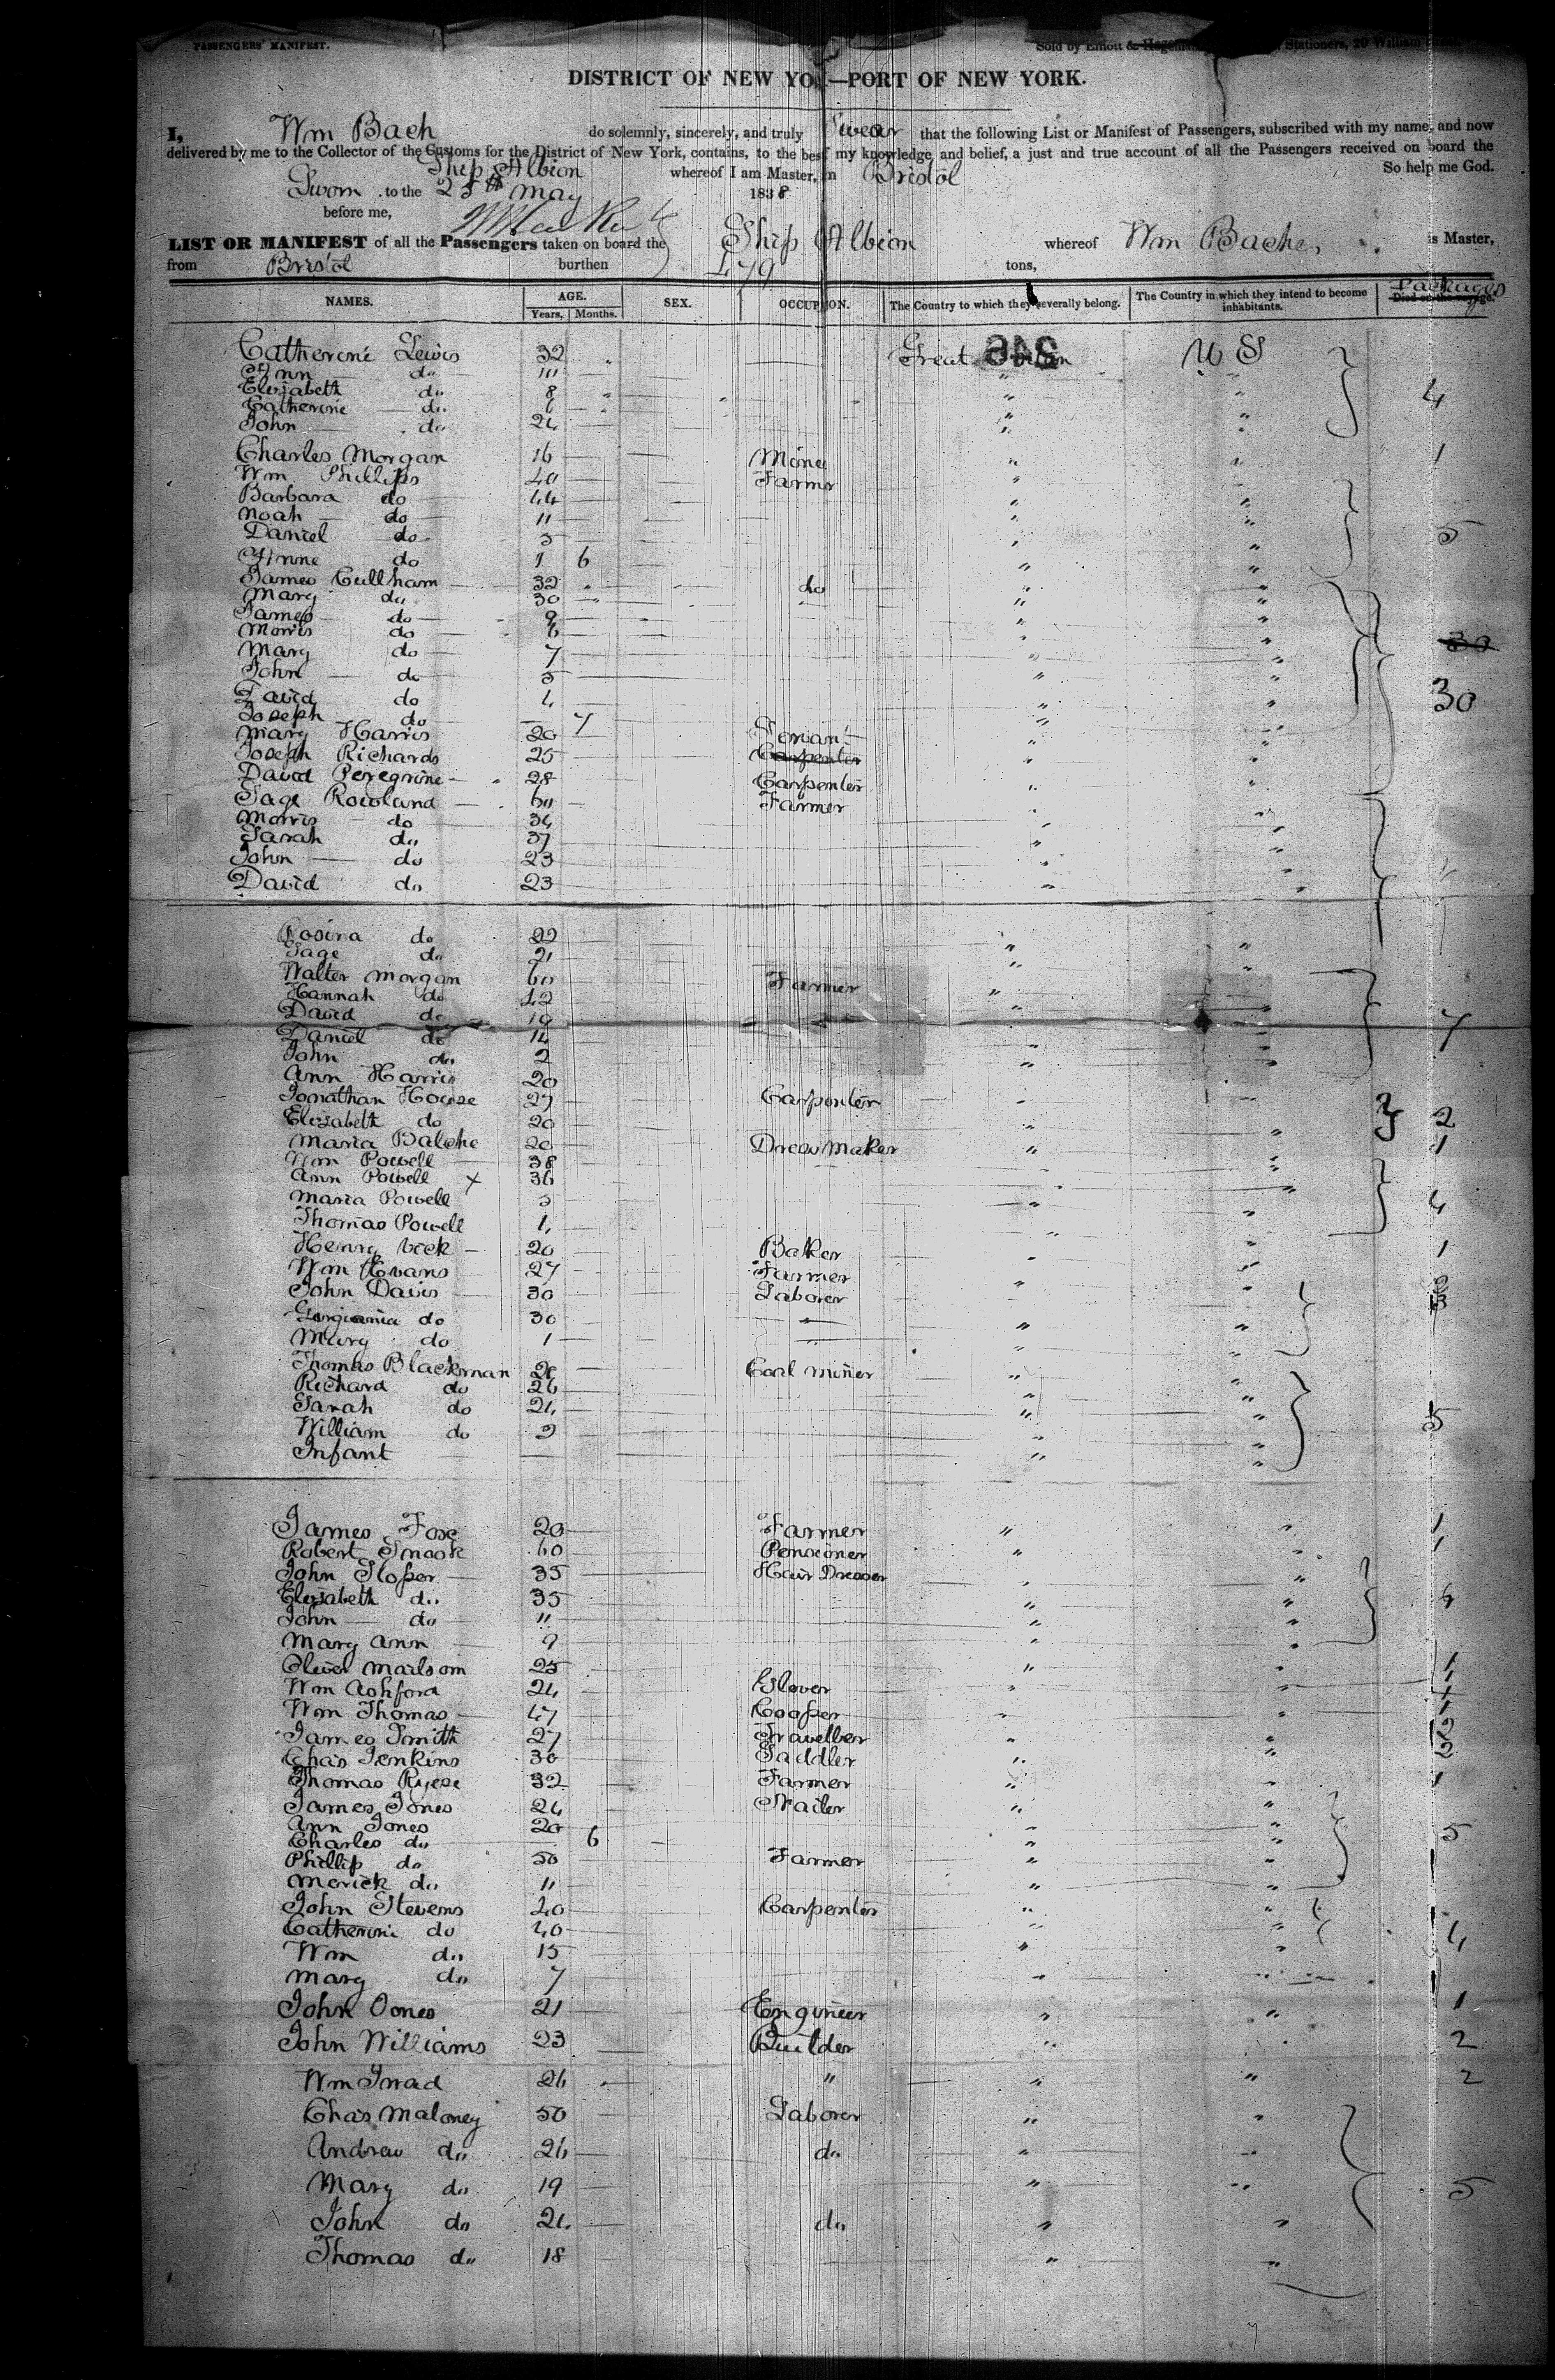 PASSENGERS' MANIFEST.
Sold by Elliott & Stationers, 20 William
DISTRICT OF NEW YO—PORT OF NEW YORK.
I, Wm Bach do solemnly, sincerely, and truly Swear that the following List or Manifest of Passengers, subscribed with my name, and now
delivered by me to the Collector of the Customs for the District of New York, contains, to the best my knowledge and belief, a just and true account of all the Passengers received on board the
Ship Albion whereof I am Master, Bristol So help me God.
Sworn to the 25th May 1838
before me,
LIST OR MANIFEST of all the Passengers taken on board the Ship Albion whereof Wm Bache, is Master,
from Bristol burthen 479 tons,
NAMES. AGE. SEX. OCCUPATION. The Country to which they severally belong. The Country in which they intend to become inhabitants. Packages Died on the voyage.
Years, Months.
Catherine Lewis 32 Great U S
Ann do 10 "
Elizabeth do 8 " 4
Catherine do 6 "
John do 24 "
Charles Morgan 16 " 1
Wm Phillips 40 Farmer "
Barbara do 44 "
Noah do 11 "
Daniel do 5 " 5
do 1 6 "
James Cullham 32 do "
Mary do 30 "
James do 9 "
Morris do 6 " 30
Mary do 7 "
John do 5 "
David do 4 " 30
Joseph do 7 "
Mary Harris 20 Servant "
Joseph Richards 25 Carpenter "
David Peregrine 28 Carpenter "
Sage Rowland 60 Farmer
Morris do 34 "
Sarah do 37 "
John do 23 "
David do 23 "
Rosina do 22 "
Sage do 21 "
Walter Morgan 60 Farmer "
Hannah do 42 "
David do 19 7
Daniel do 14 "
John do 2 "
Ann Harris 20
Jonathan House 27 Carpenter "
Elizabeth do 20 " 2
Maria Balche 20 Dress Maker " 1
Wm Powell 38 "
Ann Powell x 36 "
Maria Powell 3 " 4
Thomas Powell "
Henry Vick 20 Baker " 1
Wm Evans 27 Farmer "
John Davis 30 Laborer " 3
Gorgiania do 30 " "
Mary do 1 " "
Thomas Blackman Coal miner "
Richard do 26 "
Sarah do 24 " 5
William do "
Infant "
James Fox 20 Farmer " 1
Robert Snook 60 Pensioner " 1
John Sloper 35 Hair Dresser "
Elizabeth do 35 "
John do 11 "
Mary Ann 9 "
Oliver Mailsom 25 " 1
Wm Ashford 24 Glover " 1
Wm Thomas 47 Cooper " 1
James Smith 27 Traveller " 2
Chas Jenkins 30 Saddler " 2
Thomas Ryese 32 Farmer " 1
James Jones 24 Nailer "
Ann Jones 20 " 5
Charles do 6 "
Phillip do 50 Farmer "
Merick do 11 "
John Stevens 40 Carpenter "
Catherine do 40 " 4
Wm do 15 "
Mary do 7 "
John Jones 21 Engineer " 1
John Williams 23 Builder " 2
Wm 26 " " 2
Chas Maloney 50 Laborer "
Andrew do 26 do "
Mary do 19 " 5
John do 24 do "
Thomas do 18 "